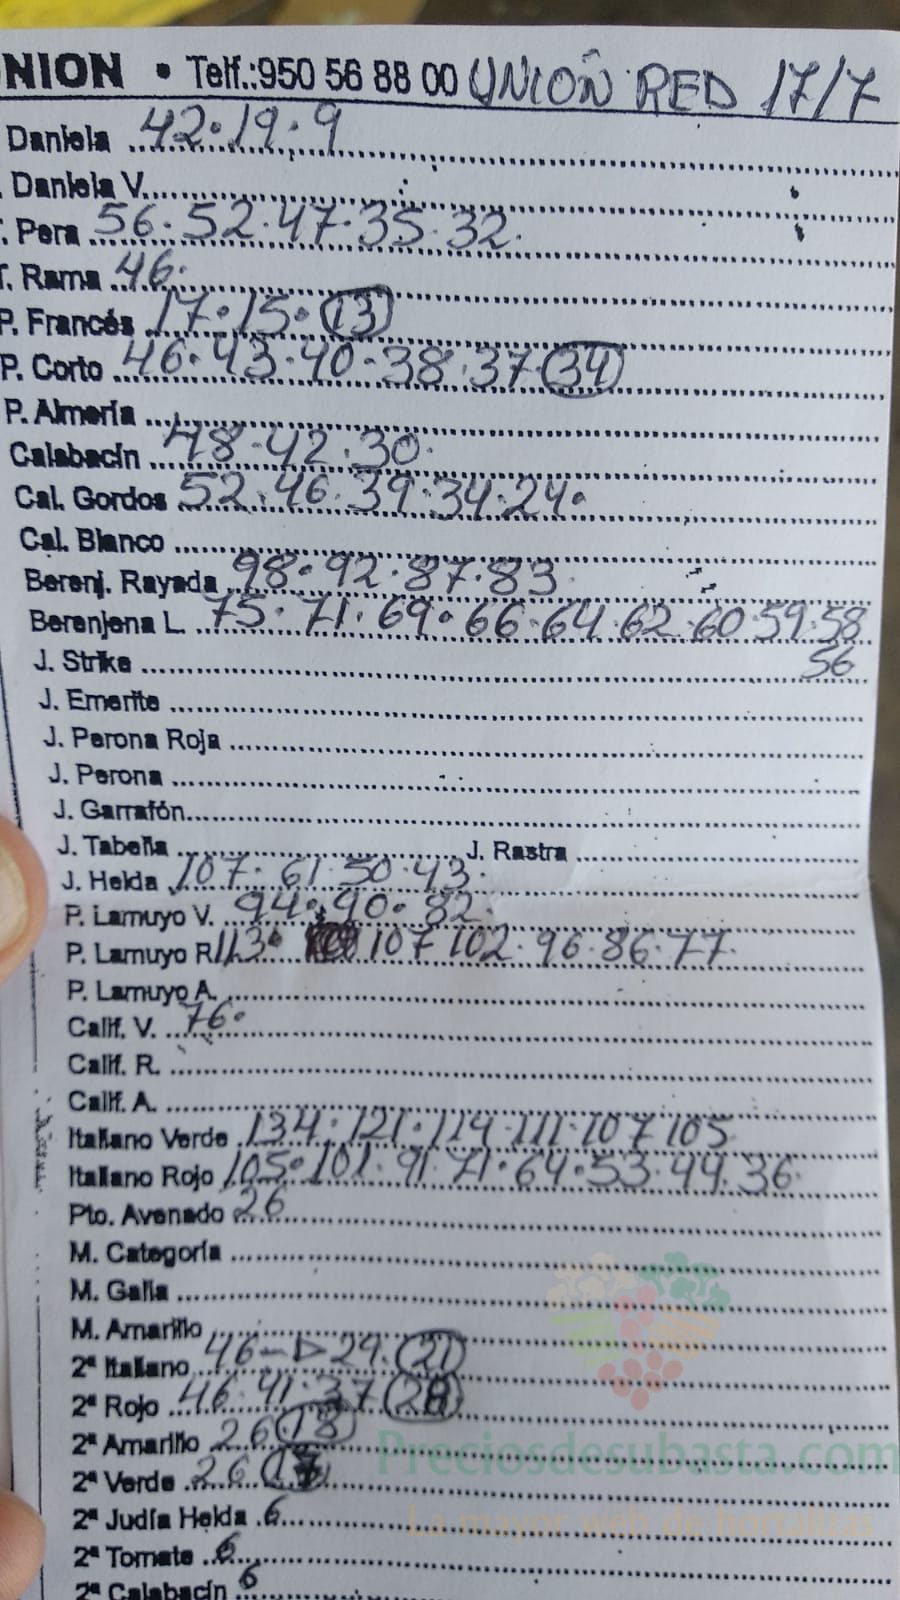 NION • Telf.:950 56 88 00 UNIOÑ RED 17/7
Daniela 42·19·9
Daniela V.
. Pera 56·52·47·35·32·
T. Rama 46·
P. Francés 17·15·(13)
P. Corto 46·43·40·38·37·(34)
P. Almería
Calabacín 48·42·30·
Cal. Gordos 52·46·39·34·24·
Cal. Blanco
Berenj. Rayada 98·92·87·83
Berenjena L. 75·71·69·66·64·62·60·59·58
J. Strike 56
J. Emerite
J. Perona Roja
J. Perona
J. Garrafón
J. Tabella J. Rastra
J. Helda 107·61·50·43·
P. Lamuyo V. 94·90·82·
P. Lamuyo R. 113· 107 102·96·86·77·
P. Lamuyo A.
Calif. V. 76·
Calif. R.
Calif. A.
Italiano Verde 134·121·114·111·107 105
Italiano Rojo 105·101·91·71·64·53·44·36·
Pto. Avenado 26
M. Categoría
M. Galia
M. Amarillo
2ª Italiano 46-▷29·(21)
2ª Rojo 46·41·37
2ª Amarillo 26(18)
2ª Verde 26
2ª Judía Helda 6
2ª Tomate 6
2ª Calabacín 6
Preciosdesubasta.com
La mayor web de hortalizas